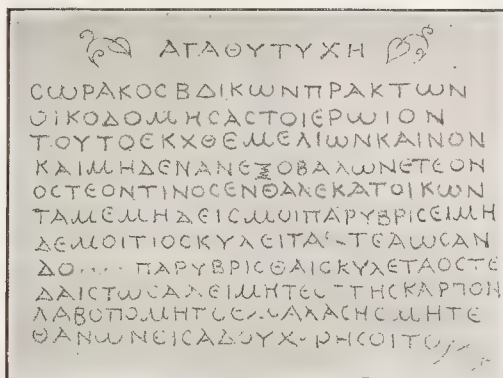 ΑΓΑΘΥΤΥΧΗ
CΩΡΑΚΟCΒΔΙΚΩΝΠΡΑΚΤΩΝ
ΟΙΚΟΔΟΜΗCΑCΤΟΙΕΡΩΙΟΝ
ΤΟΥΤΟΕΚΧΘΕΜΕΛΙΩΝΚΑΙΝΟΝ
ΚΑΙΜΗΔΕΝΑΝΕΞΟΒΑΛΩΝΕΤΕΟΝ
ΟCΤΕΟΝΤΙΝΟCΕΝΘΑΛΕΚΑΤΟΙΚΩΝ
ΤΑΜΕΜΗΔΕΙCΜΟΙΠΑΡΥΒΡΙCΕΙΜΗ
ΔΕΜΟΙΤΙΟCΚΥΛΕΙΤΑ ΤΕΑΩCΑΝ
ΔΟ.... ΠΑΡΥΒΡΙCΘΑΙCΚΥΛΕΤΑΟCΤΕ
ΔΑΙCΤΩ ΑΛΕΙΜΗΤΕ ΤΗCΚΑΡΠΟΝ
ΛΑΒΟΠΟΜΗΤ ΑΛΑCΗCΜΗΤΕ
ΘΑΝΩΝΕΙCΑΔΟΥΧ ΡΗCΟΙΤΟ